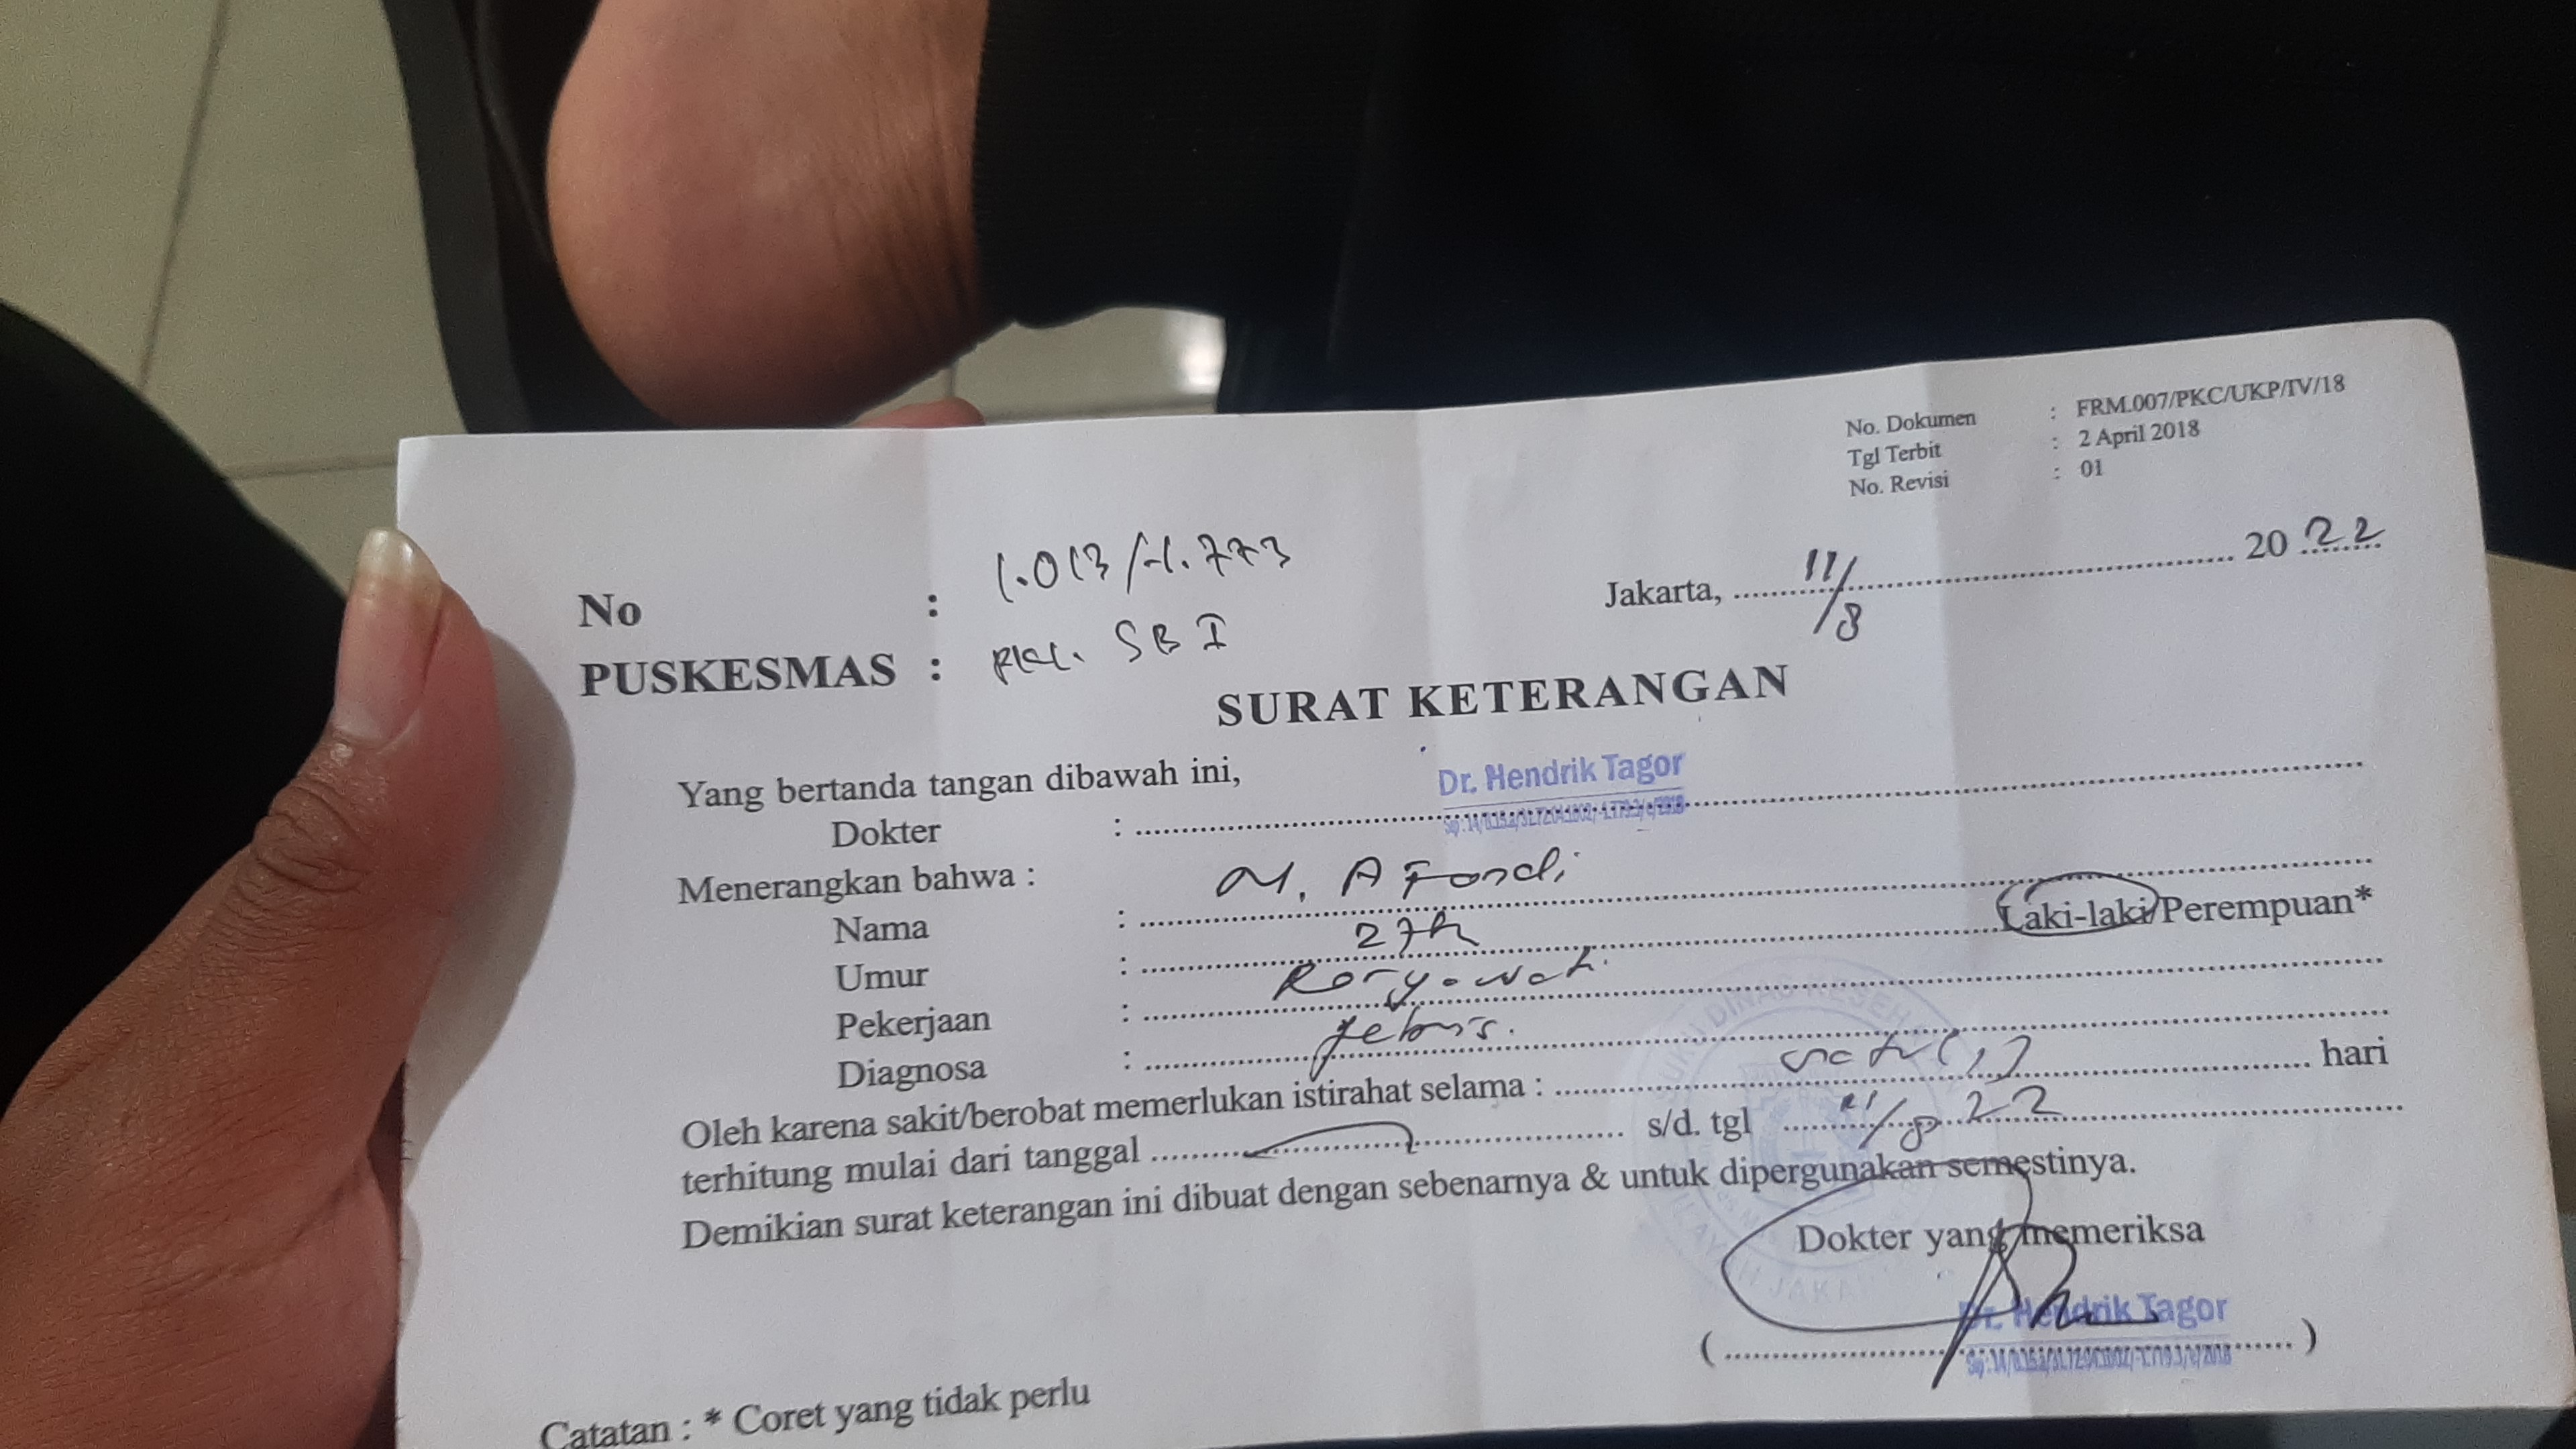 No. Dokumen : FRM.007/PKC/UKP/IV/18
Tgl Terbit : 2 April 2018
No. Revisi : 01
No : 1.013/-1.773
Jakarta, 11/8 2022
PUSKESMAS : SB I
SURAT KETERANGAN
Yang bertanda tangan dibawah ini,
Dokter : Dr. Hendrik Tagor
Menerangkan bahwa :
Nama : M. AFandi
Umur : 27th Laki-laki/Perempuan*
Pekerjaan : Karyawati
Diagnosa : febris.
Oleh karena sakit/berobat memerlukan istirahat selama : satu (1) hari
terhitung mulai dari tanggal s/d. tgl 11/8 22
Demikian surat keterangan ini dibuat dengan sebenarnya & untuk dipergunakan semestinya.
Dokter yang memeriksa
Dr. Hendrik Tagor
( )
Catatan : * Coret yang tidak perlu